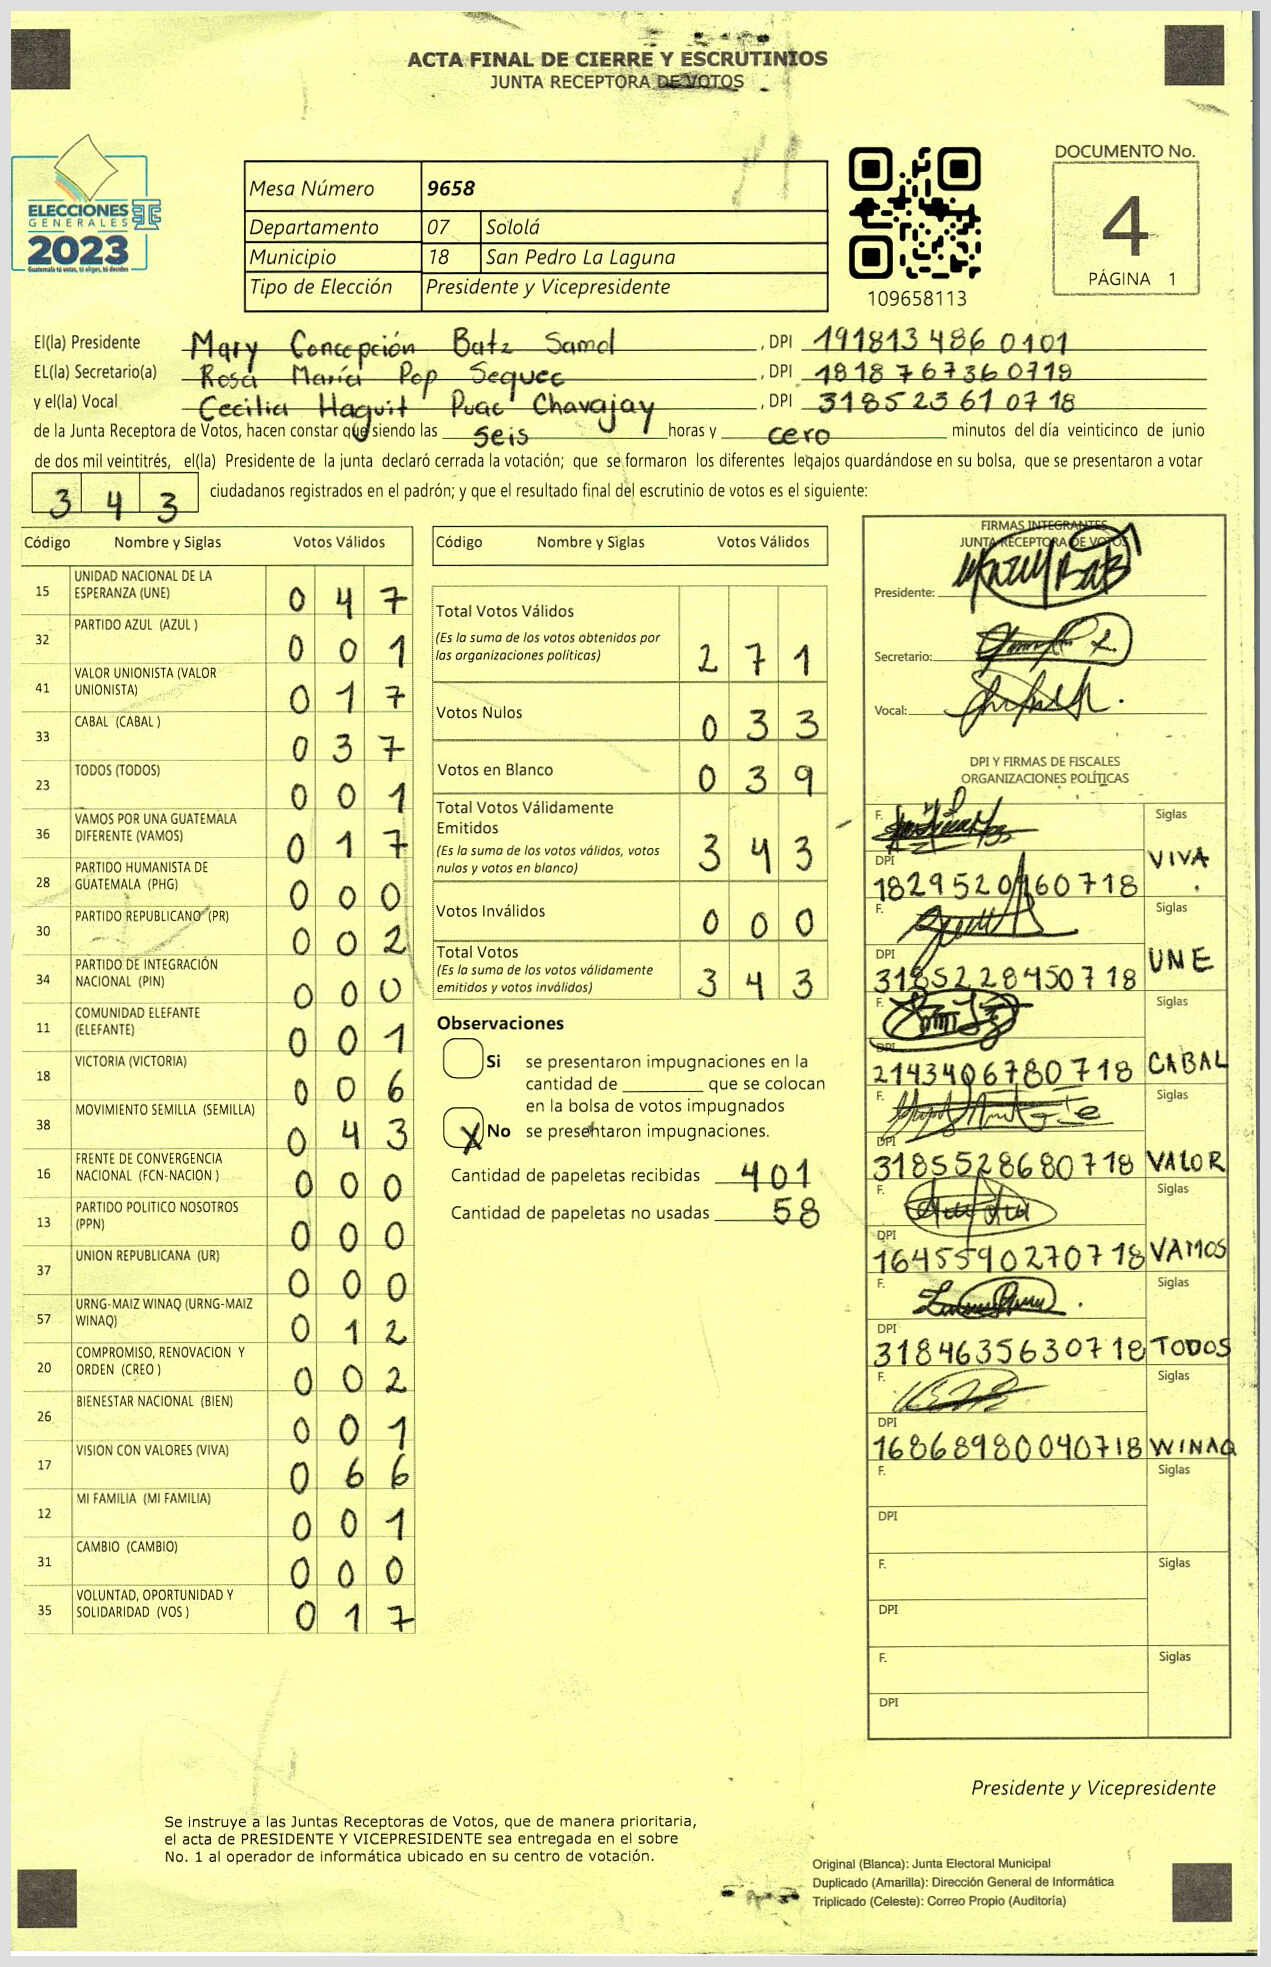 ACTA FINAL DE CIERRE Y ESCRUTINIOS
JUNTA RECEPTORA DE VOTOS
ELECCIONES
GENERALES
2023
Guatemala tú votas, tú eliges, tú decides
Mesa Número 9658
Departamento 07 Sololá
Municipio 18 San Pedro La Laguna
Tipo de Elección Presidente y Vicepresidente
109658113
DOCUMENTO No.
4
PÁGINA 1
El(la) Presidente Mary Concepción Batz Samol, DPI 191813486 0101
EL(la) Secretario(a) Rosa María Pop Sequec, DPI 1818767360718
y el(la) Vocal Cecilia Haguit Puac Chavajay, DPI 318523610718
de la Junta Receptora de Votos, hacen constar que siendo las seis horas y cero minutos del día veinticinco de junio
de dos mil veintitrés, el(la) Presidente de la junta declaró cerrada la votación; que se formaron los diferentes legajos guardándose en su bolsa, que se presentaron a votar
343 ciudadanos registrados en el padrón; y que el resultado final del escrutinio de votos es el siguiente:
Código Nombre y Siglas Votos Válidos
15 UNIDAD NACIONAL DE LA ESPERANZA (UNE) 047
32 PARTIDO AZUL (AZUL ) 001
41 VALOR UNIONISTA (VALOR UNIONISTA) 017
33 CABAL (CABAL ) 037
23 TODOS (TODOS) 001
36 VAMOS POR UNA GUATEMALA DIFERENTE (VAMOS) 017
28 PARTIDO HUMANISTA DE GUATEMALA (PHG) 000
30 PARTIDO REPUBLICANO (PR) 002
34 PARTIDO DE INTEGRACIÓN NACIONAL (PIN) 000
11 COMUNIDAD ELEFANTE (ELEFANTE) 001
18 VICTORIA (VICTORIA) 006
38 MOVIMIENTO SEMILLA (SEMILLA) 043
16 FRENTE DE CONVERGENCIA NACIONAL (FCN-NACION ) 000
13 PARTIDO POLITICO NOSOTROS (PPN) 000
37 UNION REPUBLICANA (UR) 000
57 URNG-MAIZ WINAQ (URNG-MAIZ WINAQ) 012
20 COMPROMISO, RENOVACION Y ORDEN (CREO ) 002
26 BIENESTAR NACIONAL (BIEN) 001
17 VISION CON VALORES (VIVA) 066
12 MI FAMILIA (MI FAMILIA) 001
31 CAMBIO (CAMBIO) 000
35 VOLUNTAD, OPORTUNIDAD Y SOLIDARIDAD (VOS ) 017
Código Nombre y Siglas Votos Válidos
Total Votos Válidos
(Es la suma de los votos obtenidos por
las organizaciones políticas) 271
Votos Nulos 033
Votos en Blanco 039
Total Votos Válidamente
Emitidos
(Es la suma de los votos válidos, votos
nulos y votos en blanco) 343
Votos Inválidos 000
Total Votos
(Es la suma de los votos válidamente
emitidos y votos inválidos) 343
Observaciones
Si se presentaron impugnaciones en la
cantidad de ________ que se colocan
en la bolsa de votos impugnados
X No se presentaron impugnaciones.
Cantidad de papeletas recibidas 401
Cantidad de papeletas no usadas 58
FIRMAS INTEGRANTES
JUNTA RECEPTORA DE VOTOS
Presidente:
Secretario:
Vocal:
DPI Y FIRMAS DE FISCALES
ORGANIZACIONES POLÍTICAS
F. Siglas
DPI VIVA
F. Siglas
DPI UNE
3185228450718
F. Siglas
DPI CABAL
2143406780718
F. Siglas
DPI
3185528680718 VALOR
F. Siglas
DPI
1645590270718 VAMOS
F. Siglas
DPI
3184635630718 TODOS
F. Siglas
DPI
16868980040718 WINAQ
F. Siglas
DPI
F. Siglas
DPI
F. Siglas
DPI
Presidente y Vicepresidente
Se instruye a las Juntas Receptoras de Votos, que de manera prioritaria,
el acta de PRESIDENTE Y VICEPRESIDENTE sea entregada en el sobre
No. 1 al operador de informática ubicado en su centro de votación.
Original (Blanca): Junta Electoral Municipal
Duplicado (Amarilla): Dirección General de Informática
Triplicado (Celeste): Correo Propio (Auditoría)